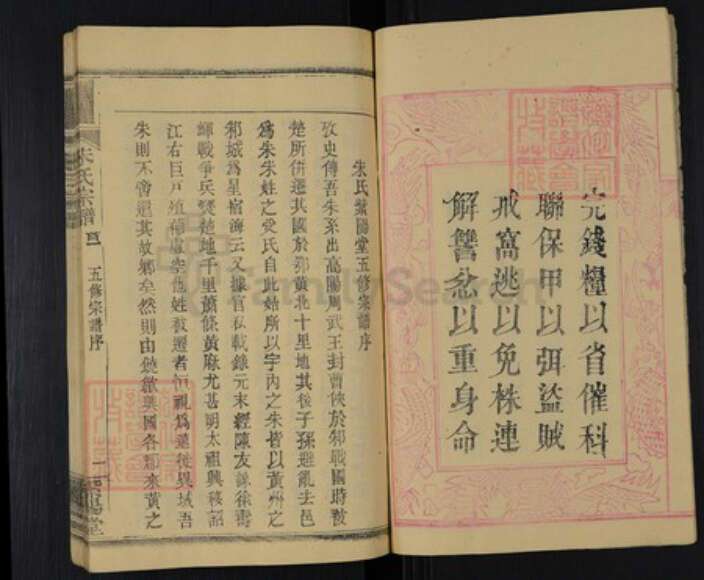 完錢糧以省催科
聯保甲以弭盜賊
戒窩逃以免株連
解讐忿以重身命
朱氏紫陽堂五修宗譜序
攷史傳吾朱系出高陽周武王封曹俠於邾戰國時被
楚所併遷其國於鄂黃北十里地其後子孫避亂去邑
爲朱朱姓之受氏自此始所以宇內之朱皆以黃州之
邾城爲星宿海云又據官私載錄元末經陳友諒徐壽
輝戰爭兵燹楚地千里蕭條黃麻尤甚明太祖興移詔
江右巨戶殖
他姓
遷者
視爲
異域吾
朱則不啻還其故鄉矣然則由饒
興國各郡來黃之
朱氏宗譜
五修宗譜序
一
陽堂
FamilySearch